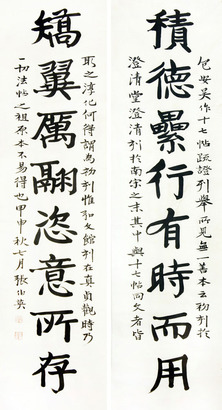 積德纍行有時而用
矯翼厲翮恣意所存
包安吳作十七帖疏證列舉所見無一善本云初刻於
澄清堂澄清刻於南宋之末其中與十七帖同文者皆
取之淳化何得謂為初刻惟弘文館刻在真貞觀時乃
一切法帖之祖原本不易得也甲申秋七月張伯英